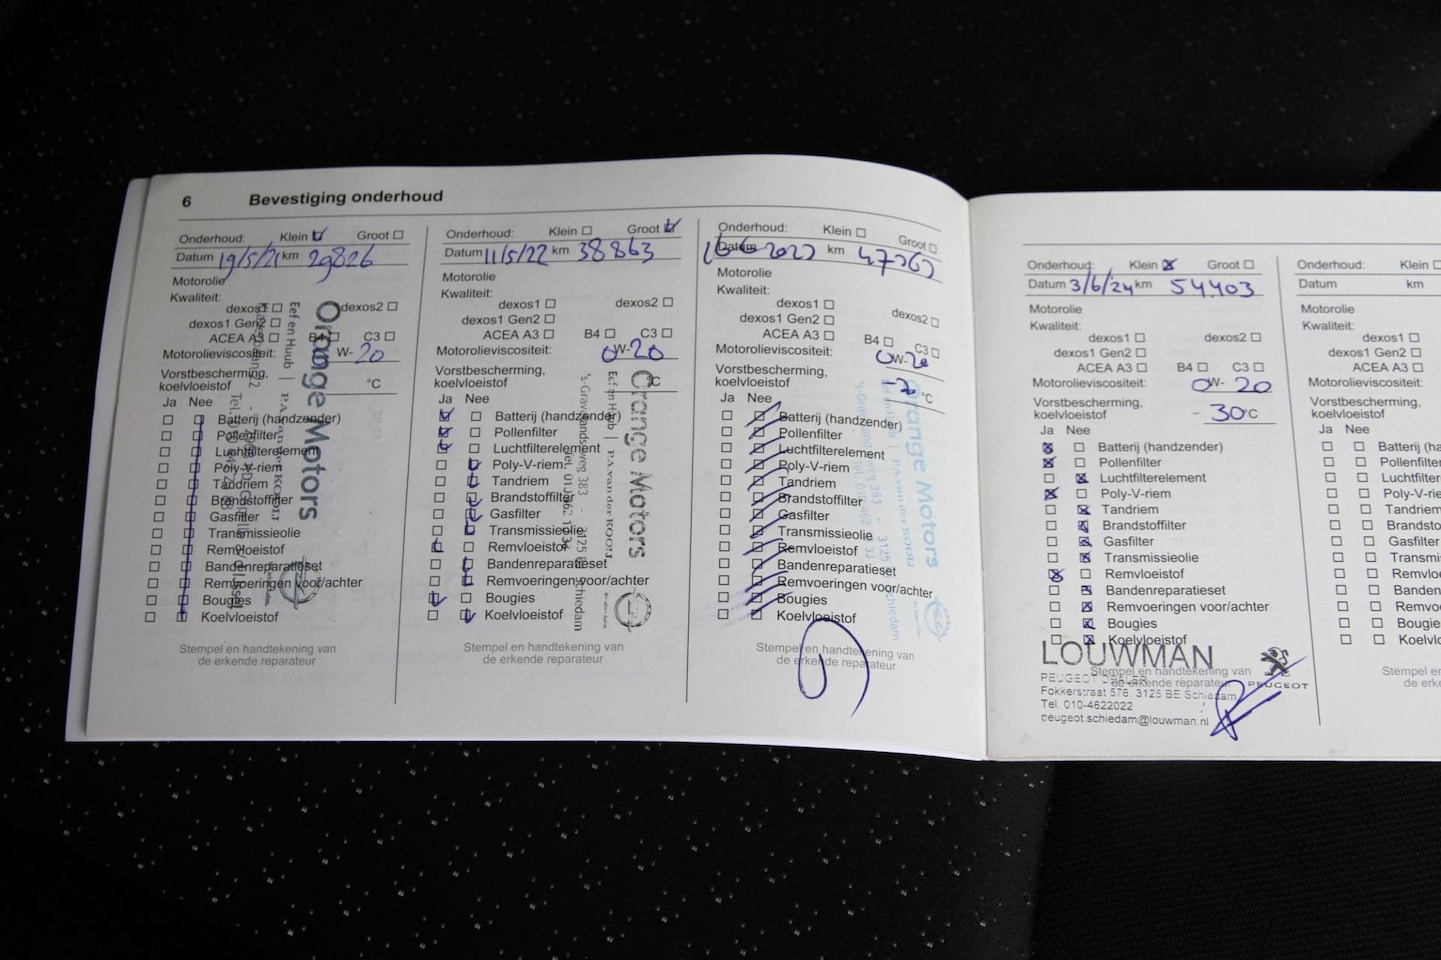 6 Bevestiging onderhoud
Onderhoud: Klein Groot
Datum 19/5/21 km 29826
Motorolie
Kwaliteit:
dexos1 dexos2
dexos1 Gen2
ACEA A3 B4 C3
Motorolieviscositeit: W-20
Vorstbescherming,
koelvloeistof °C
Ja Nee
Batterij (handzender)
Pollenfilter
Luchtfilterelement
Poly-V-riem
Tandriem
Brandstoffilter
Gasfilter
Transmissieolie
Remvloeistof
Bandenreparatieset
Remvoeringen voor/achter
Bougies
Koelvloeistof
Orange Motors
Eef en Huub | P.A. van der KOOIJ
Stempel en handtekening van
de erkende reparateur
Onderhoud: Klein Groot
Datum 11/5/22 km 38863
Motorolie
Kwaliteit:
dexos1 dexos2
dexos1 Gen2
ACEA A3 B4 C3
Motorolieviscositeit: 0W-20
Vorstbescherming,
koelvloeistof °C
Ja Nee
Batterij (handzender)
Pollenfilter
Luchtfilterelement
Poly-V-riem
Tandriem
Brandstoffilter
Gasfilter
Transmissieolie
Remvloeistof
Bandenreparatieset
Remvoeringen voor/achter
Bougies
Koelvloeistof
Orange Motors
Eef en Huub | P.A. van der KOOIJ
's-Gravelandseweg 383 - 3125 Schiedam
Stempel en handtekening van
de erkende reparateur
Onderhoud: Klein Groot
Datum km
Motorolie
Kwaliteit:
dexos1 dexos2
dexos1 Gen2
ACEA A3 B4 C3
Motorolieviscositeit: 0W-20
Vorstbescherming,
koelvloeistof °C
Ja Nee
Batterij (handzender)
Pollenfilter
Luchtfilterelement
Poly-V-riem
Tandriem
Brandstoffilter
Gasfilter
Transmissieolie
Remvloeistof
Bandenreparatieset
Remvoeringen voor/achter
Bougies
Koelvloeistof
Orange Motors
Stempel en handtekening van
de erkende reparateur
Onderhoud: Klein Groot
Datum 3/6/24 km 54.403
Motorolie
Kwaliteit:
dexos1 dexos2
dexos1 Gen2
ACEA A3 B4 C3
Motorolieviscositeit: 0W-20
Vorstbescherming,
koelvloeistof -30°C
Ja Nee
Batterij (handzender)
Pollenfilter
Luchtfilterelement
Poly-V-riem
Tandriem
Brandstoffilter
Gasfilter
Transmissieolie
Remvloeistof
Bandenreparatieset
Remvoeringen voor/achter
Bougies
Koelvloeistof
Stempel en handtekening van
de erkende reparateur
LOUWMAN
PEUGEOT
PEUGEOT
Fokkerstraat 576, 3125 BE Schiedam
Tel. 010-4622022
peugeot.schiedam@louwman.nl
Onderhoud: Klein
Datum km
Motorolie
Kwaliteit:
dexos1
dexos1 Gen2
ACEA A3
Motorolieviscositeit:
Vorstbescherming,
koelvloeistof
Ja Nee
Batterij (ha
Pollenfilte
Luchtfilter
Poly-V-rie
Tandriem
Brandsto
Gasfilter
Transmi
Remvloe
Bandenr
Remvo
Bougie
Koelvlo
Stempel
de erke